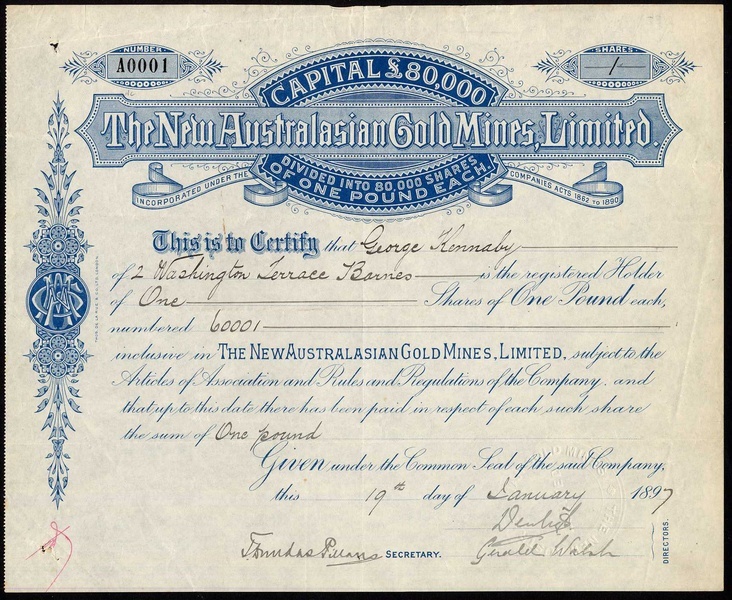 NUMBER
A0001
SHARES
1
CAPITAL £80,000
The New Australasian Gold Mines, Limited.
INCORPORATED UNDER THE
COMPANIES ACTS 1862 TO 1890
DIVIDED INTO 80,000 SHARES
OF ONE POUND EACH.
This is to Certify that George Kennaby
of 2 Washington Terrace Barnes is the registered Holder
of One Shares of One Pound each,
numbered 60001
inclusive in THE NEW AUSTRALASIAN GOLD MINES, LIMITED, subject to the
Articles of Association and Rules and Regulations of the Company, and
that up to this date there has been paid in respect of each such share
the sum of One pound
Given under the Common Seal of the said Company,
this 19th day of January 1897
SECRETARY.
Gerald Walsh
DIRECTORS.